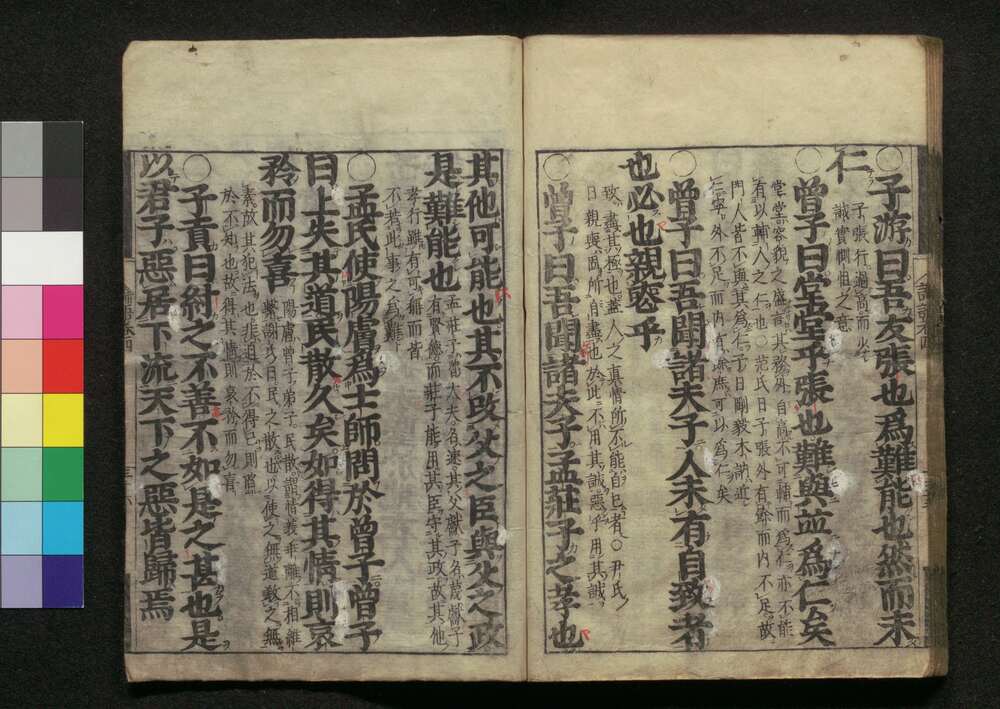 ○子游曰吾友張也爲難能也然而未
仁
子張行過高而少
誠實惻怛之意
○曾子曰堂堂乎張也難與並爲仁矣
堂堂容貌之盛言其務外自高不可輔而爲仁亦不能
有以輔人之仁也○范氏曰子張外有餘而内不足故
門人皆不與其爲仁子曰剛毅木訥近
仁寧外不足而内有餘庶可以爲仁矣
○曾子曰吾聞諸夫子人未有自致者
也必也親喪乎
致盡其極也蓋人之真情所不能自已者○尹氏
曰親喪固所自盡也於此不用其誠惡乎用其誠
○曾子曰吾聞諸夫子孟莊子之孝也
其他可能也其不改父之臣與父之政
是難能也
孟莊子魯大夫名速其父獻子名蔑獻子
有賢德而莊子能用其臣守其政故其他
孝行雖有可稱而皆
不若此事之爲難
○孟氏使陽膚爲士師問於曾子曾子
曰上失其道民散久矣如得其情則哀
矜而勿喜
陽膚曾子弟子民散謂情義乖離不相維
繫謝氏曰民之散也以使之無道教之無
義故其犯法也非迫於不得已則陷
於不知也故得其情則哀矜而勿喜
○子貢曰紂之不善不如是之甚也是
以君子惡居下流天下之惡皆歸焉